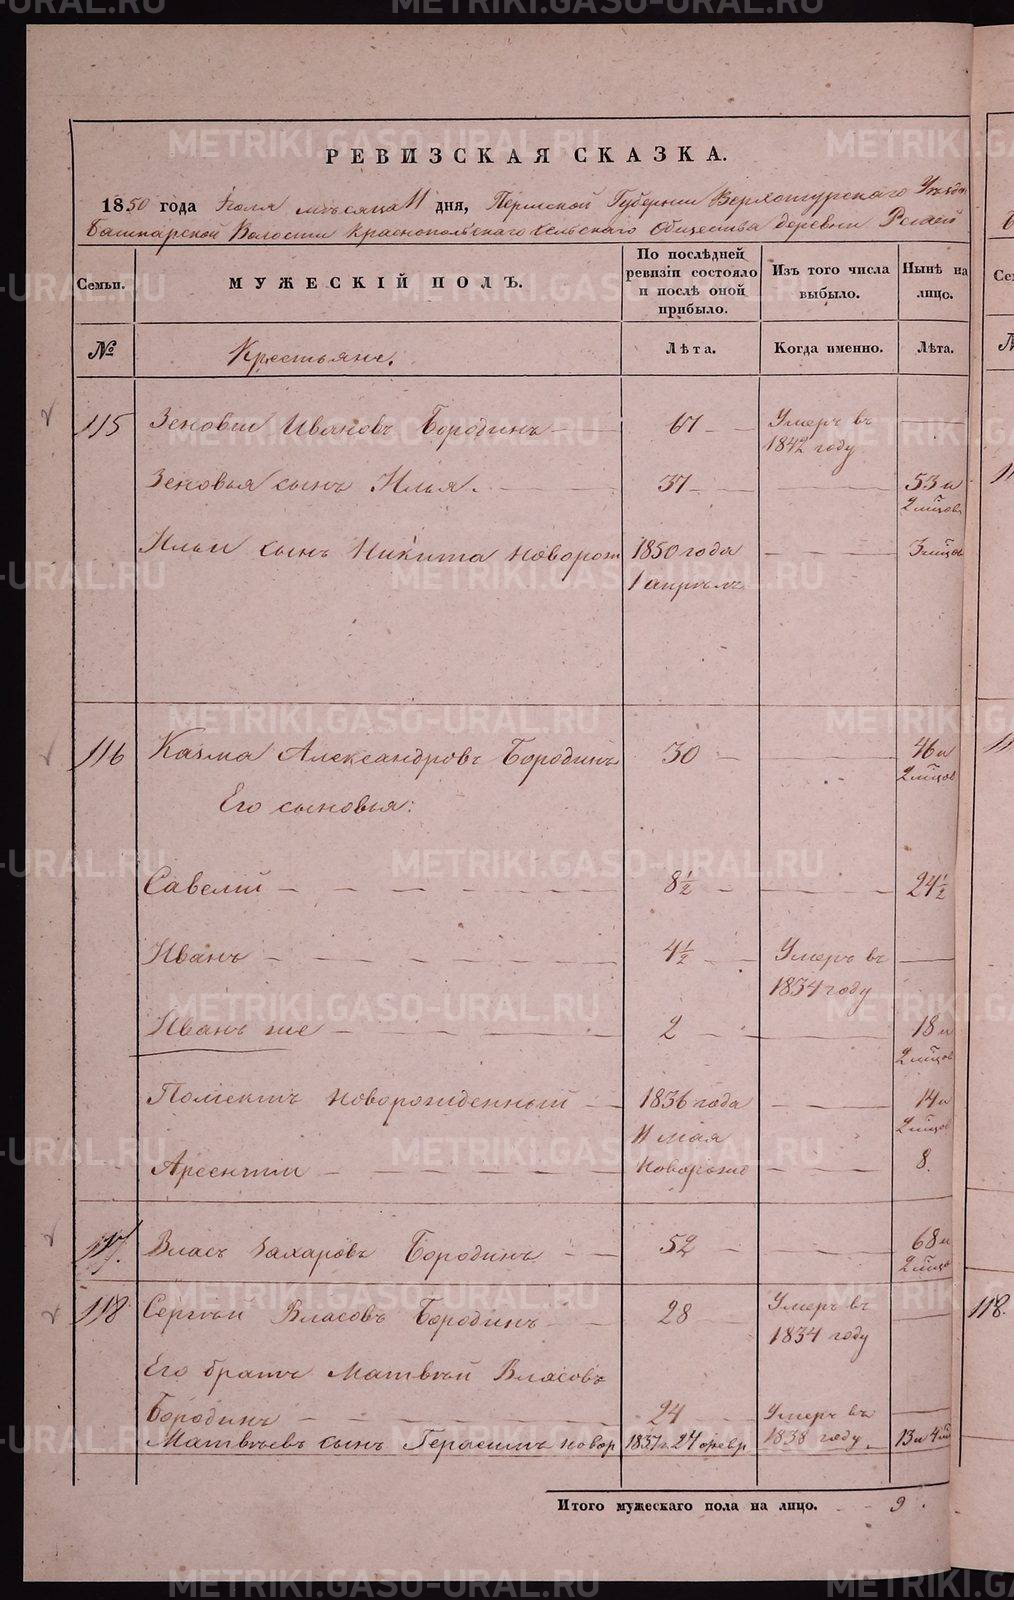 РЕВИЗСКАЯ СКАЗКА.
1850 года Іюля мѣсяца 11 дня, Пермской Губерніи Верхотурскаго Уѣзда
Башкарской Волости Краснопольскаго Сельскаго Общества деревни
Семьи.
МУЖЕСКІЙ ПОЛЪ.
По послѣдней ревизіи состояло и послѣ оной прибыло.
Изъ того числа выбыло.
Нынѣ на лицо.
№
Крестьяне.
Лѣта.
Когда именно.
Лѣта.
115 Зеновеи Ивановъ Бородинъ 67 Умеръ въ
1842 году
Зеновья сынъ Илья. 37 53 и
2 мѣсяцов
Ильи сынъ Никита новорож 1850 года 3 мѣсяцов
1 апрѣль
116 Казма Александровъ Бородинъ 30 46 и
2 мѣсяцов
Его сыновья:
Савелій 8½ 24½
Иванъ 4½ Умеръ въ
1834 году
Иванъ же 2 18 и
2 мѣсяцов
новорожденный 1836 года 14 и
11 мая 2 мѣсяцов
Арсентіи новорожде 8.
117. Власъ Захаровъ Бородинъ 52 68 и
2 мѣсяцов
118 Сергѣи Власовъ Бородинъ 28 Умеръ въ
1834 году
Его братъ Матвѣй Власовъ
Бородинъ 24 Умеръ въ
1838 году
Матвѣевъ сынъ Герасимъ новор 1837 г. 24 февр 13 и 4 мѣ
Итого мужескаго пола на лицо. 9.
118.
METRIKI.GASO-URAL.RU